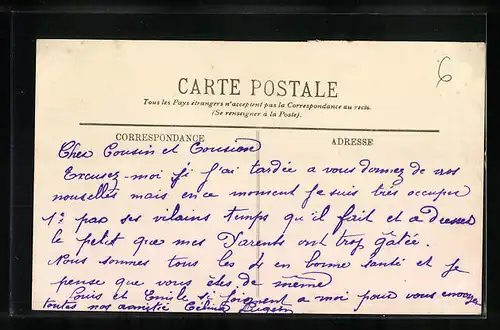 6
CARTE POSTALE
Tous les Pays étrangers n'acceptent pas la Correspondance au recto.
(Se renseigner à la Poste).
CORRESPONDANCE
ADRESSE
Cher Cousin et Cousine
Excusez-moi si j'ai tardée a vous donnez de nos
nouvelles mais en ce moment je suis très occuper
1º par ses vilains temps qu'il fait et a
le petit que mes Parents ont trop gâtée.
Nous sommes tous les en bonne santé et je
pense que vous êtes de même
Louis et Emile se joignent a moi pour vous envoyer
toutes nos amitié Célina